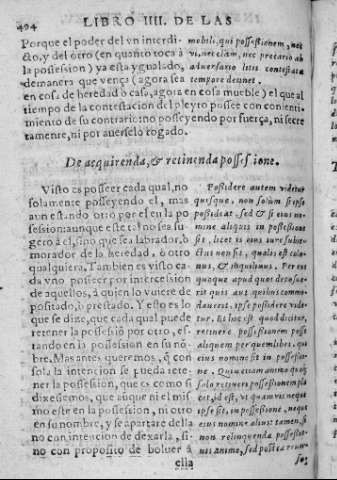 494 LIBRO IIII. DE LAS
Porque el poder del vn interdi-
cto, y del otro (en quanto toca à
la possession) ya esta ygualado,
demanera que vença (agora sea
en cosa de heredad o casa, agora en cosa mueble) el que al
tiempo de la contestacion del pleyto possee con consenti-
miento de su contrario: no posseyendo por fuerça, ni secre
tamente, ni por auerselo rogado.
mobili, qui possessionem, nec
vi, nec clam, nec precario ab
aduersario litis contestatæ
tempore detinet.
De acquirenda, & retinenda possessione.
Visto es posseer cada qual, no
solamente posseyendo el, mas
aun estando otro por el en la po
session: aunque este tal no sea su-
geto à el, sino que sea labrador, ò
morador de la heredad, ò otro
qualquiera. Tambien es visto ca-
da vno posseer por intercession
de aquellos, à quien lo vuiere de
positado, ò prestado. Y esto es lo
que se dize, que cada qual puede
retener la possessiō por otro, es-
tando en la possession en su nō-
bre. Mas antes queremos, q̄ con
sola la intencion se pueda rete-
ner la possession, que es como si
dixessemos, que aūque ni el mis-
mo este en la possession, ni otro
en su nombre, y se apartare della
no con intencion de dexarla, si-
no con proposito de boluer à
ella
Possidere autem videtur
quisque, non solum si ipse
possideat, sed & si eius no-
mine aliquis in possessione
sit, licet is eius iure subie-
ctus non sit, qualis est colo-
nus, & inquilinus. Per eos
quoque apud quos deposue-
rit quis aut quibus commo-
dauerit, ipse possidere vide-
tur. Et hoc est quod dicitur,
retinere possessionem posse
aliquem per quemlibet, qui
eius nomine sit in possessio-
ne. Quin etiam animo quoq;
solo retineri possessionem pla
cet, id est, vt quamuis neque
ipse sit in possessione, neque
eius nomine alius: tamen, si
non relinquendæ possessio-
nis animo, sed postea reuer-
su⁹